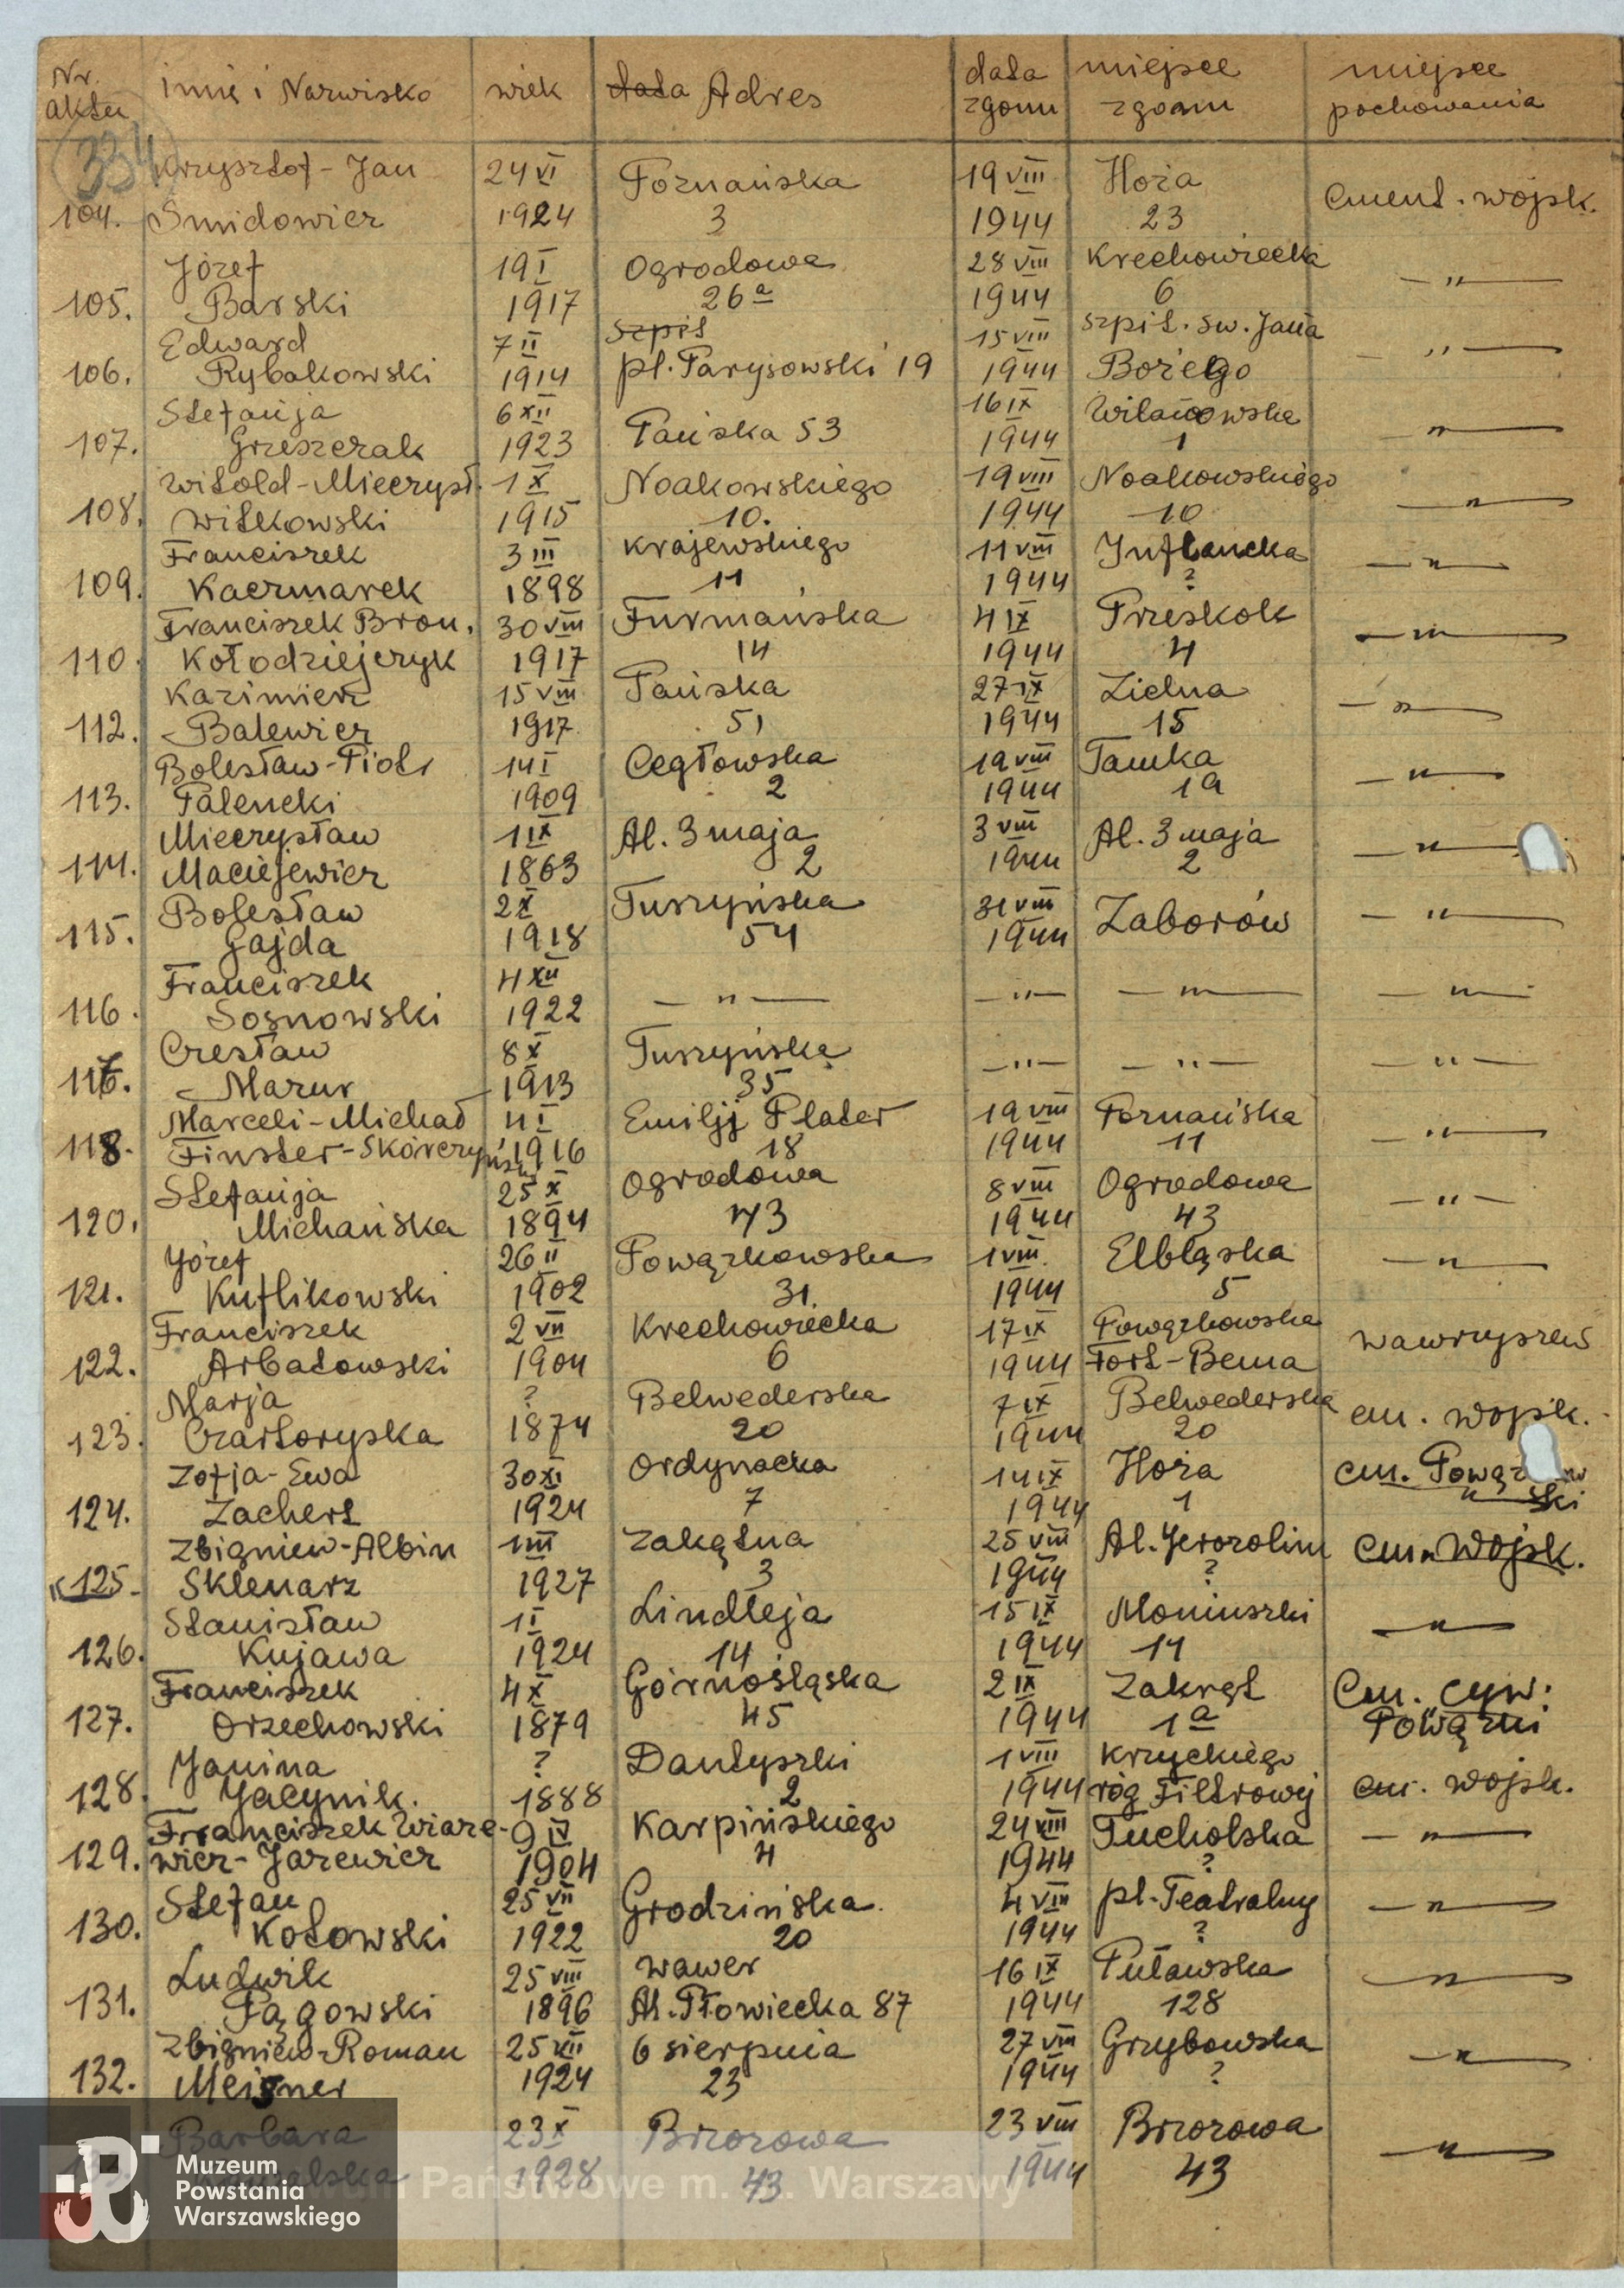 Nr. aktu imię i Nazwisko wiek data Adres data zgonu miejsce zgonu miejsce pochowania
334
Krzysztof - Jan 24 VI Poznańska 19 VIII Hoża cment. wojsk.
104. Smidowicz 1924 3 1944 23
Józef 19 I Ogrodowa 28 VIII Krechowiecka — " —
105. Barski 1917 26 a 1944 6
Edward 7 II szpit 15 VIII szpit. św. Jana — " —
106. Rybakowski 1914 pl. Parysowski 19 1944 Bożego
Stefanja 6 XII Pańska 53 16 IX Wilanowska — " —
107. Grzeszczak 1923 1944 1
Witold - Mieczysł. 1 X Noakowskiego 19 VIII Noakowskiego — " —
108. Witkowski 1915 10. 1944 10
Franciszek 3 III Krajewskiego 11 VIII Inflancka — " —
109. Kaczmarek 1898 11 1944 ?
Franciszek Bron. 30 VIII Furmańska 4 IX Przeskok — " —
110. Kołodziejczyk 1917 14 1944 4
Kazimierz 15 VIII Pańska 27 IX Zielna — " —
112. Balewicz 1917 51 1944 15
Bolesław - Piotr 14 I Cegłowska 19 VIII Tamka — " —
113. Palencki 1909 2 1944 1a
Mieczysław 1 IX Al. 3 maja 3 VIII Al. 3 maja — " —
114. Maciejewicz 1863 2 1944 2
Bolesław 2 X Tuszyńska 31 VIII Zaborów — " —
115. Gajda 1918 54 1944
Franciszek 4 XII — " — — " — — " — — " —
116. Sosnowski 1922
Czesław 8 X Tuszyńska — " — — " — — " —
117. Mazur 1913 35
Marceli - Michał 4 I Emilji Plater 19 VIII Poznańska — " —
118. Finster - Skórczyński 1916 18 1944 11
Stefanja 25 X Ogrodowa 8 VIII Ogrodowa — " —
120. Michańska 1894 43 1944 43
Józef 26 II Powązkowska 1 VIII Elbląska — " —
121. Kuflikowski 1902 31 1944 5
Franciszek 2 VII Krechowiecka 17 IX Powązkowska Wawrzyszew
122. Arbatowski 1904 6 1944 Fort - Bema
Marja ? Belwederska 7 IX Belwederska cm. wojsk.
123. Czartoryska 1874 20 1944 20
Zofja - Ewa 30 XI Ordynacka 14 IX Hoża cm. Powąz
124. Zachert 1924 7 1944 1
Zbigniew - Albin 1 III Zakątna 25 VIII Al. Jerozolim cm. Wojsk.
125. Sklenarz 1927 3 1944 ?
Stanisław 1 I Lindleja 15 IX Moniuszki — " —
126. Kujawa 1924 14 1944 11
Franciszek 4 X Górnośląska 2 IX Zakręt Cm. cyw.
127. Orzechowski 1879 45 1944 1 a Powązki
Janina ? Dantyszki 1 VIII Krzyckiego cm. wojsk.
128. Jacynik. 1888 2 1944 róg Filtrowej
Franciszek Wiarc- 9 IV Karpińskiego 24 VIII Tucholska — " —
129. wicz - Jarewicz 1904 4 1944 ?
Stefan 25 VII Grodzińska 4 VIII pl. Teatralny — " —
130. Kotowski 1922 20 1944 ?
Ludwik 25 VIII Wawer 16 IX Puławska — " —
131. Pągowski 1896 Al. Płowiecka 87 1944 128
Zbigniew - Roman 25 VII 6 sierpnia 27 VIII Grzybowska — " —
132. Meisner 1924 23 1944 ?
Barbara 23 X Brzozowa 23 VIII Brzozowa — " —
1928 43 1944 43
Muzeum
Powstania
Warszawskiego
Państwowe m. Warszawy